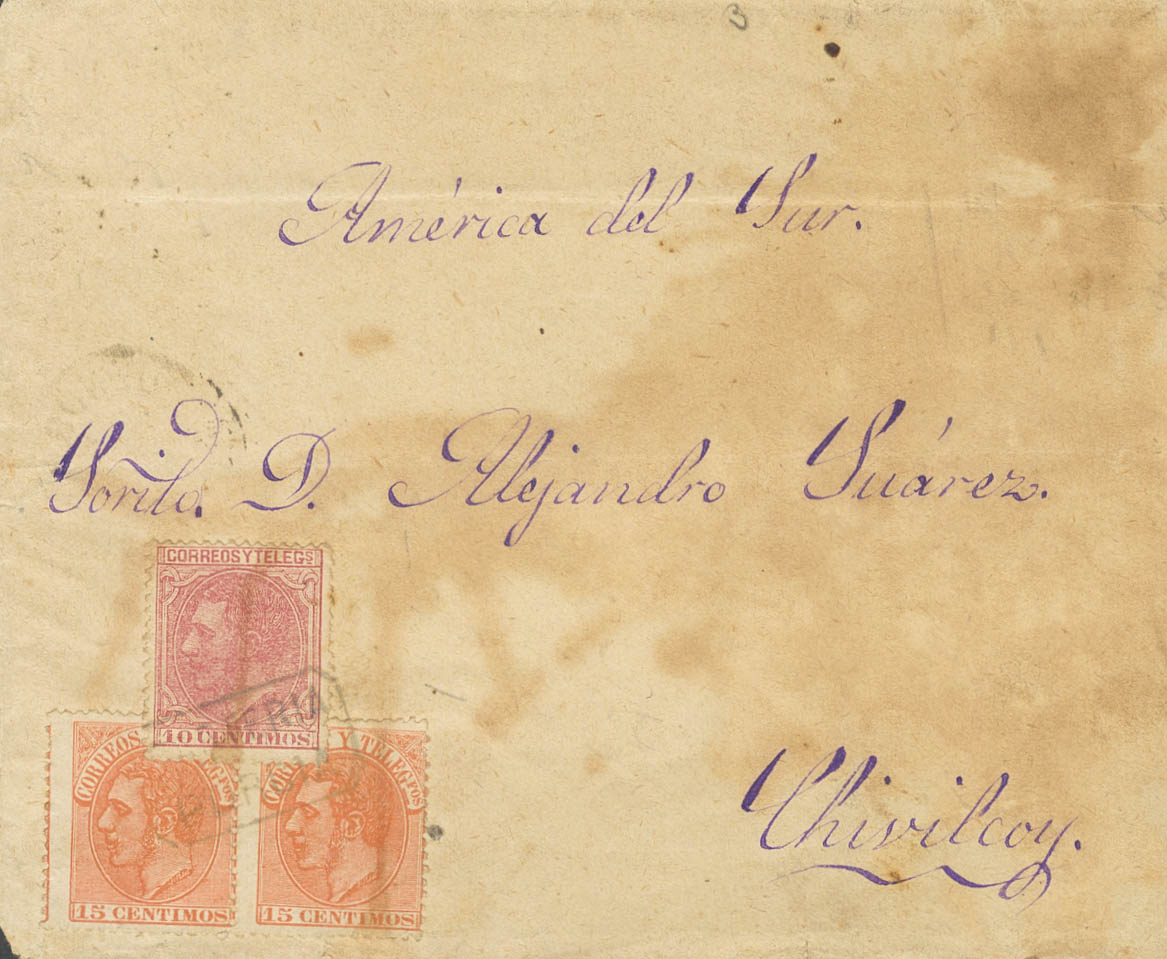 3
América del Sur.
D. Alejandro Suárez.
CORREOS Y TELEGS
10 CENTIMOS
CORREOS Y TELEGFOS
15 CENTIMOS
15 CENTIMOS
Chivilcoy.